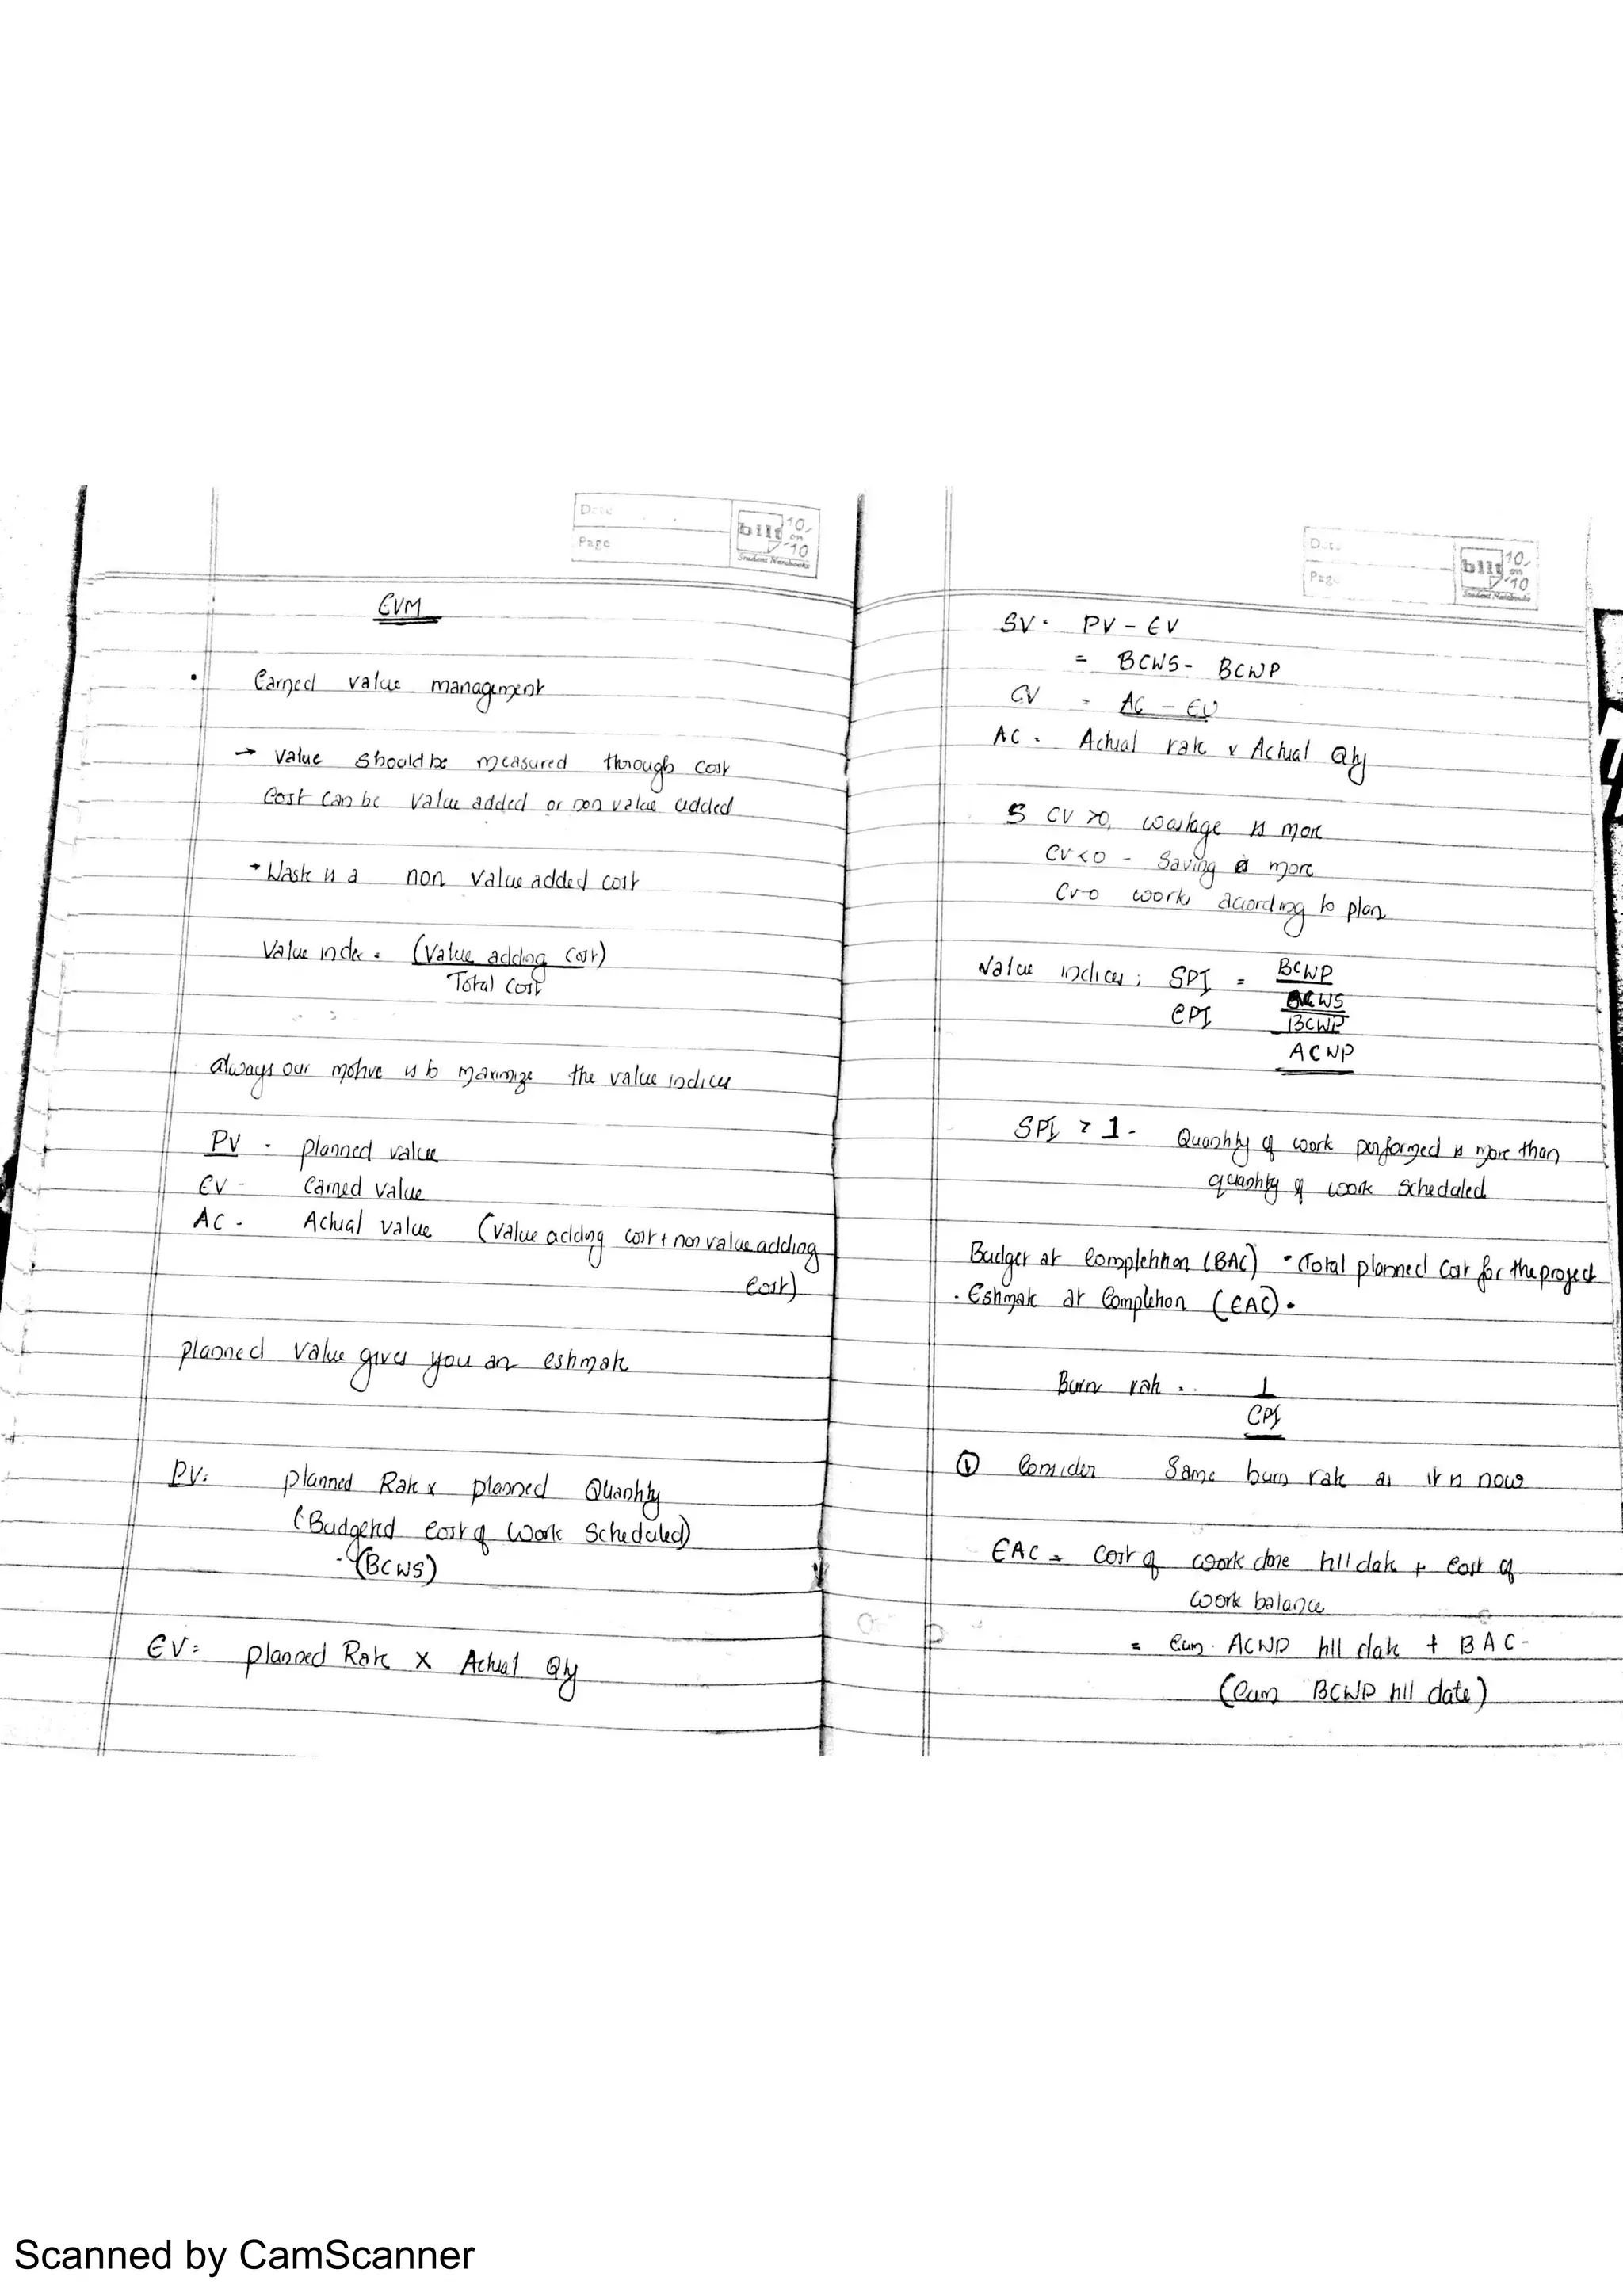 Date
Page
bilt 10 on 10
Student Notebooks
EVM
• Earned value management
→ Value should be measured through cost
Cost can be value added or non value added
→ Waste is a non value added cost
Value index = (Value adding cost)
Total cost
Always our motive is to maximize the value indices
PV - planned value
EV - Earned value
AC - Actual value (value adding cost + non value adding
cost)
planned value gives you an estimate
PV: planned Rate x planned Quantity
(Budgeted cost of work scheduled)
(BCWS)
EV = planned Rate x Actual Qty
Date
Page
bilt 10 on 10
Student Notebooks
SV = PV - EV
= BCWS - BCWP
CV = AC - EV
AC = Actual rate x Actual Qty
CV >0, wastage is more
CV<0 - Saving is more
CV=0 works according to plan
Value indices; SPI = BCWP
BCWS
CPI BCWP
ACWP
SPI > 1 - Quantity of work performed is more than
quantity of work scheduled
Budget at completion (BAC) - Total planned cost for the project
• Estimate at Completion (EAC) -
Burn rate = 1
CPI
① Consider Same burn rate as it is now
EAC = Cost of work done till date + cost of
work balance
= Cum. ACWP till date + BAC -
(Cum BCWP till date)
Scanned by CamScanner